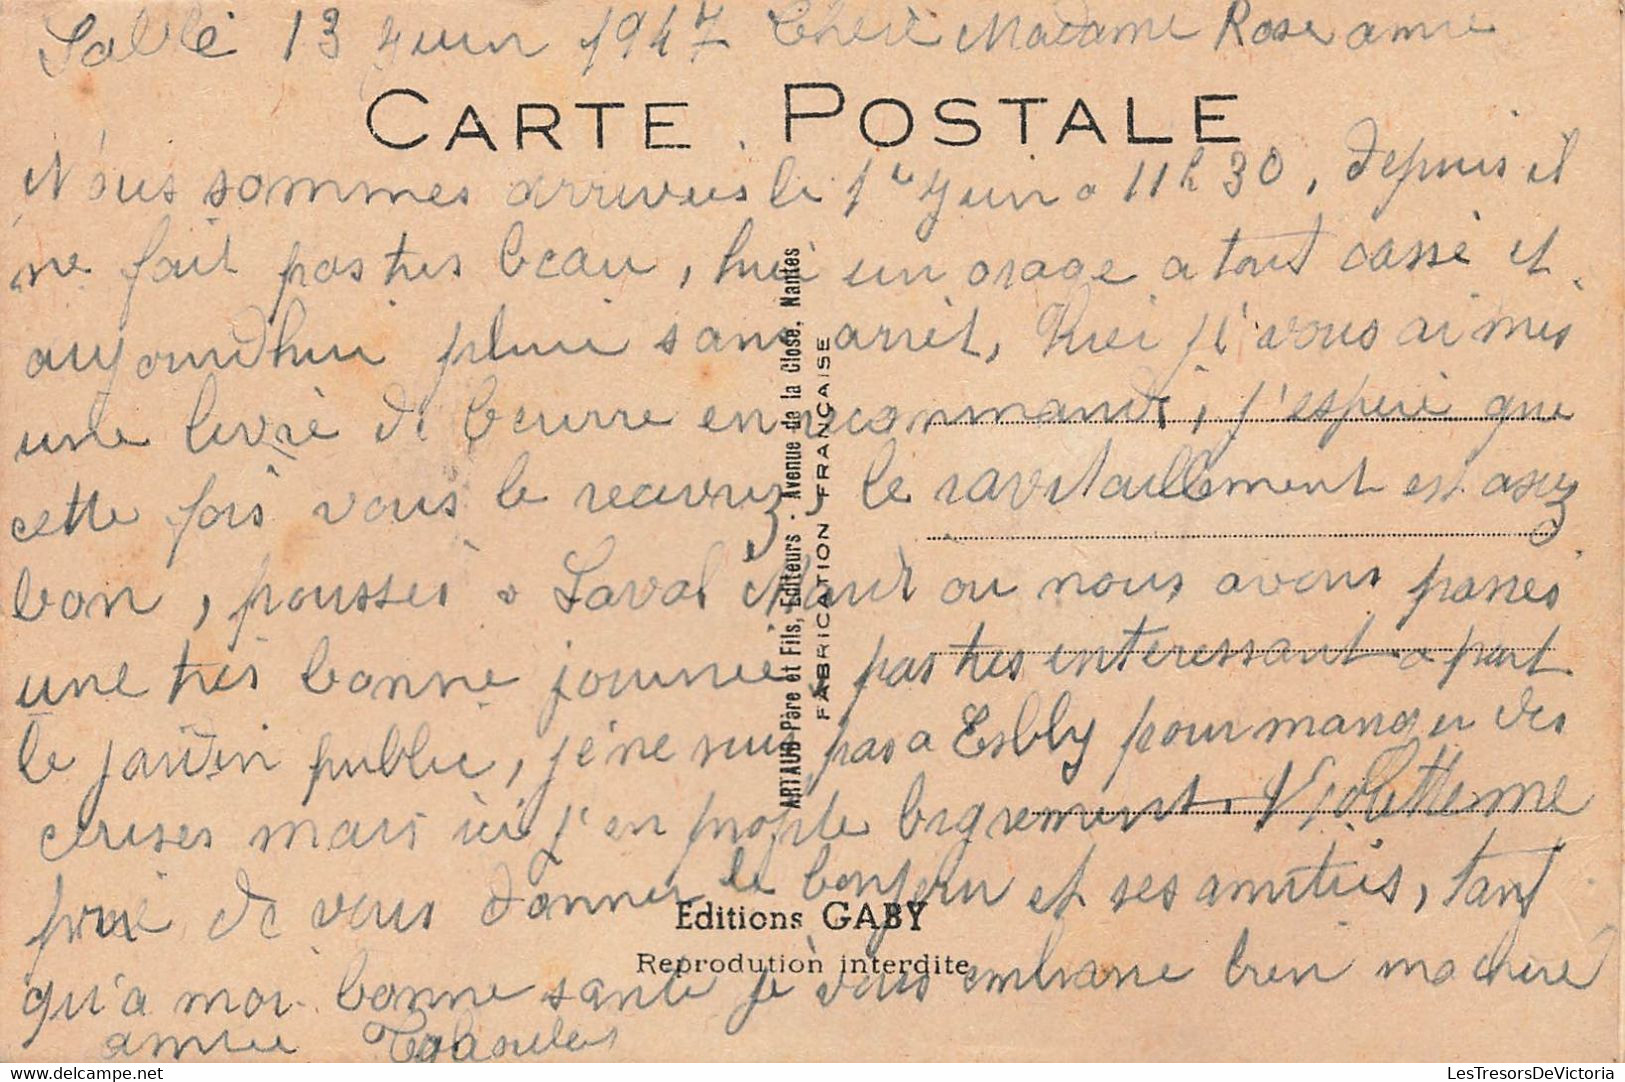 Sablé 13 Juin 1947 Chere Madame Roseamie
CARTE POSTALE
Nous sommes arrivées le 1er Juin a 11h30, depuis il
ne fait pas tres beau, hier un orage a tout cassé et
aujourdhui pluie sans arrêt, hier je vous ai mis
une livre de beurre en recommandé, j'espere que
cette fois vous le recevrez, le ravitaillement est assez
bon, poussés a Laval Mardi ou nous avons passés
une tres bonne journée pas tres interessant a part
le jardin public, je ne suis pas a Esbly pour manger des
cerises mais ici j'en profite bigrement. Violette me
prie de vous donner le bonjour et ses amitiés, tant
qu'a moi bonne santé je vous embrasse bien ma chere
amie
ARTAUD Père et Fils, Editeurs . Avenue de la Close, Nantes
FABRICATION FRANÇAISE
Editions GABY
Reprodution interdite
delcampe.net
LesTresorsDeVictoria